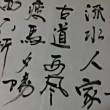 流水人家
古道西風
瘦馬夕陽